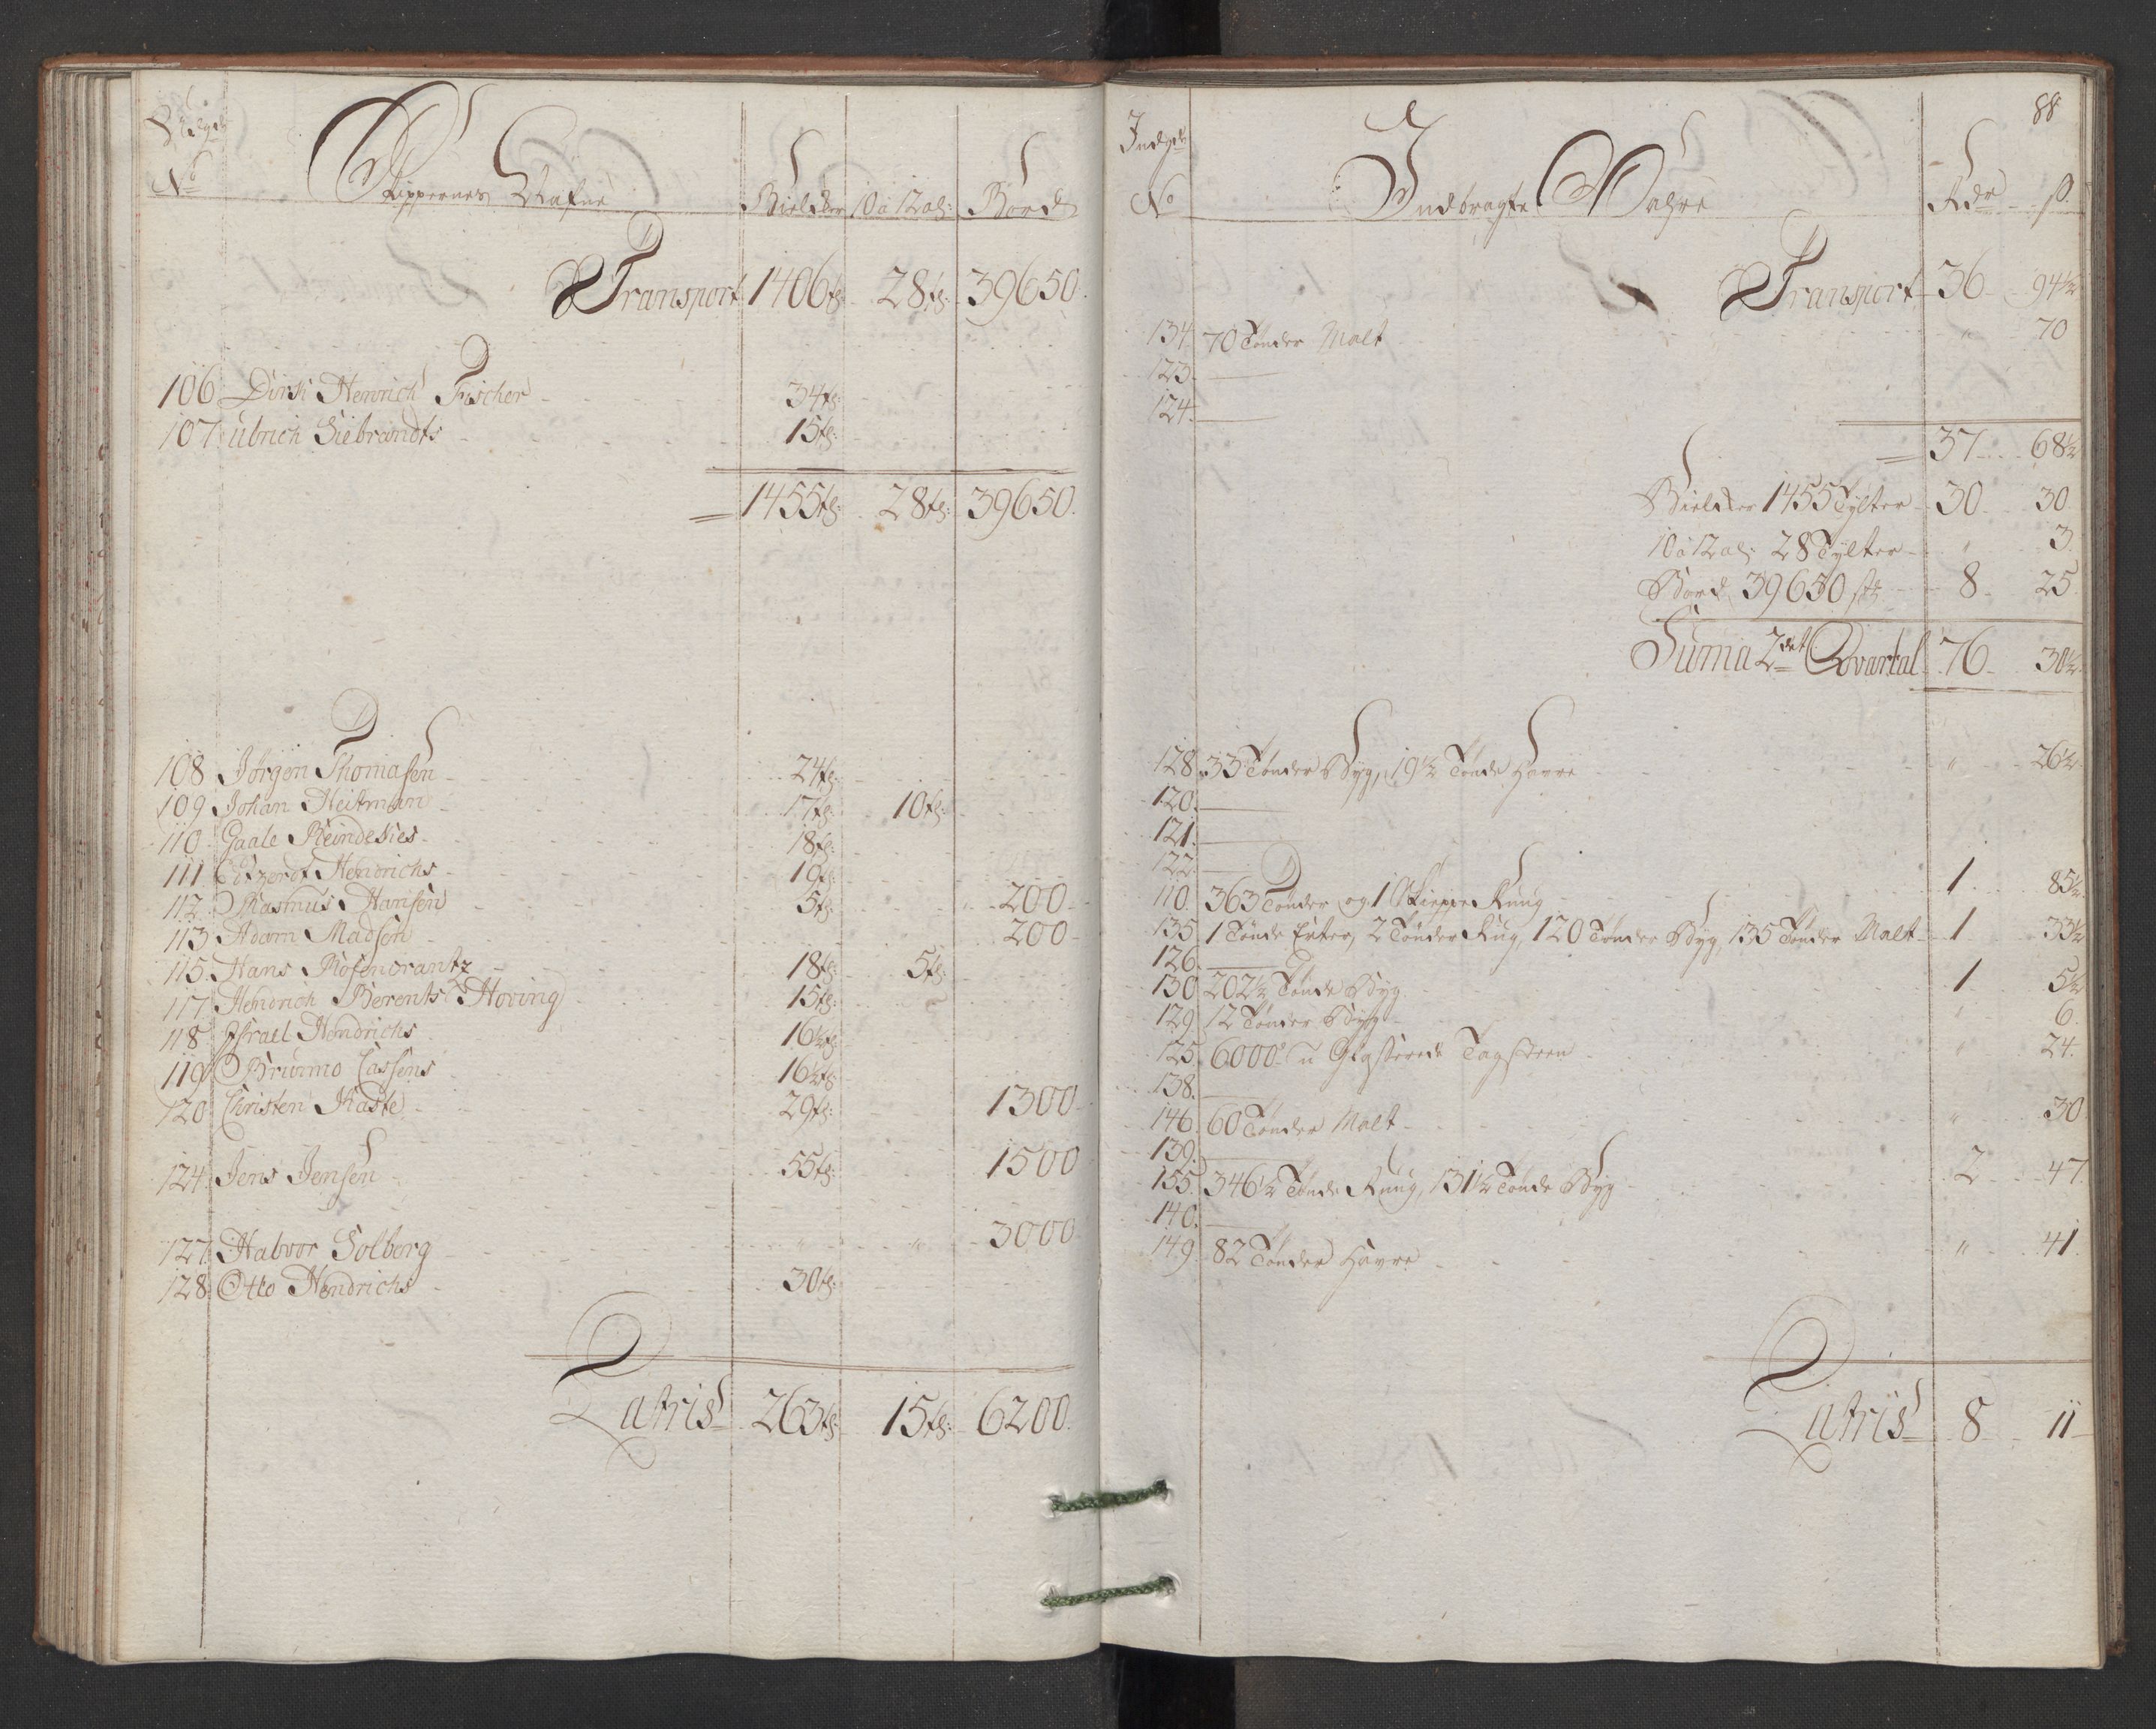 Udgde
No Skippernes Nafne Bielcker 10 à 12 al: Bord
Transport 1406 tl: 28 tl: 39650.
106 Dirk Henrich Fischer 34 tl:
107 Ulrich Siebrandts 15 tl:
1455 tl: 28 tl: 39650.
108 Jörgen Thomasen 24 tl:
109 Johan Heitman 17 tl: 10 tl:
110 Gaale Reindesies 18 tl:
111 Edzerdt Hendrichs 19 tl:
112 Rasmus Hansen 5 tl: 200
113 Adam Madsen 200
115 Hans Rosencrantz 18 tl: 5 tl:
117 Hendrich Berents Hoving 15 tl:
118 Israel Hendrichs 16½ tl:
119 Brunno Cassens 16½ tl:
120 Christen Kaste 29 tl: 1300
124 Jens Jensen 55 tl: 1500
127 Halvor Solberg " " 3000
128 Otto Hendrichs 30 tl:
Latris 263 tl: 15 tl: 6200.
88
Indgde
No Indbragte Wahre Rdr ß.
Transport 36 94½
134 70 Tönder Malt " 70
123.
124.
37 68½
Bielcker 1455 Tylter 30 30
10 à 12 al: 28 Tylter " 3.
Bord 39650 stk 8 25
Suma 2det Qvartal 76 30½
128 33 Tönder Byg, 19½ Tönde Havre " 26½
120.
121.
122.
110. 363 Tönder og 1 Skieppe Rung 1 85½
135 1 Tönde Erter, 2 Tönder Rug, 120 Tönder Byg, 135 Tönder Malt 1 33½
126.
130 202½ Tönde Byg 1 5½
129 12 Tönder Byg " 6.
125. 6000 Glasserede Tagsteen " 24.
138.
146. 60 Tönder Malt " 30
139.
155. 346½ Tönde Rung, 131½ Tönde Byg 2 47.
140.
149. 82 Tönder Havre " 41.
Latris 8 11